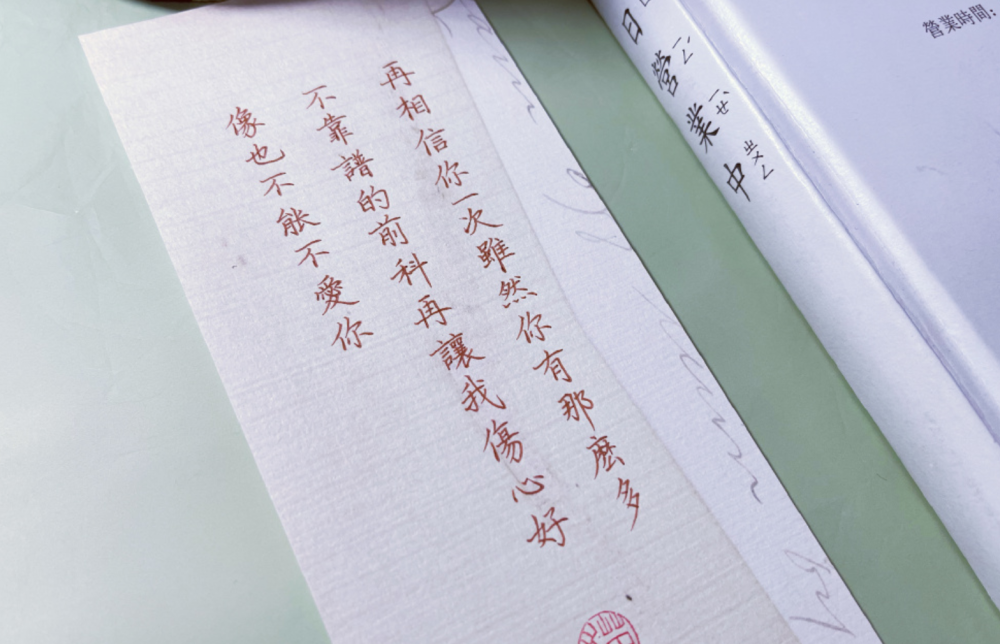 再相信你一次雖然你有那麼多
不靠譜的前科再讓我傷心好
像也不能不愛你
日營業中
ㄧㄥˊ
ㄧㄝˋ
ㄓㄨㄥ
營業時間: